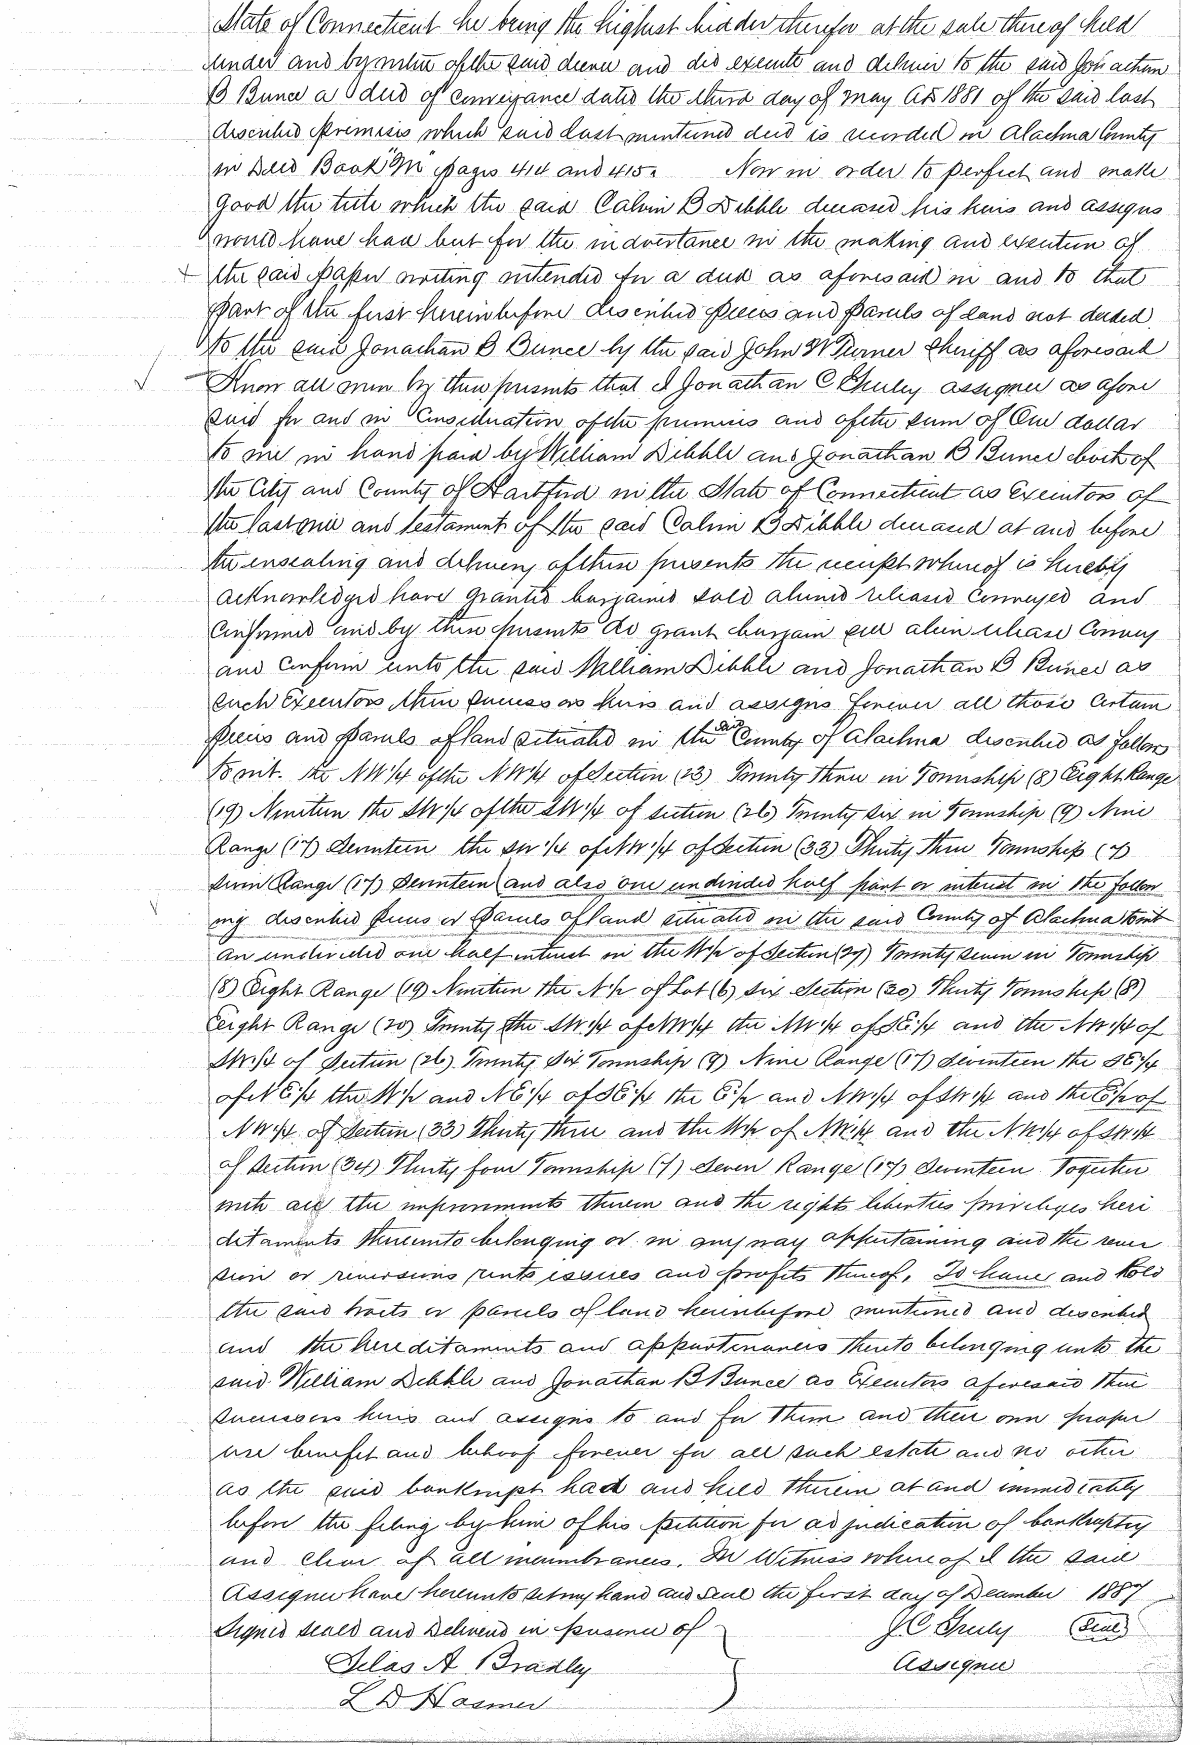 State of Connecticut he being the highest bidder therefor at the sale thereof held
under and by virtue of the said decree and did execute and deliver to the said Jonathan
B Bunce a deed of conveyance dated the third day of May AD 1881 of the said last
described premises which said last mentioned deed is recorded in Alachua County
in Deed Book "M" pages 414 and 415. Now in order to perfect and make
good the title which the said Calvin B Dibble deceased his heirs and assigns
would have had but for the inadvertance in the making and execution of
the said paper writing intended for a deed as aforesaid in and to that
part of the first hereinbefore described pieces and parcels of land not deeded
to the said Jonathan B Bunce by the said John W Turner Sheriff as aforesaid
Know all men by these presents that I Jonathan C Greeley assignee as afore
said for and in Consideration of the premises and of the sum of One dollar
to me in hand paid by William Dibble and Jonathan B Bunce both of
the City and County of Hartford in the State of Connecticut as Executors of
the last will and testament of the said Calvin B Dibble deceased at and before
the ensealing and delivery of these presents the receipt whereof is hereby
acknowledged have granted bargained sold aliened released conveyed and
Confirmed and by these presents do grant bargain sell alien release Convey
and Confirm unto the said William Dibble and Jonathan B Bunce as
such Executors their successors heirs and assigns forever all those certain
pieces and parcels of land situated in the said County of Alachua described as follows
towit. the NW1/4 of the NW1/4 of Section (23) Twenty three in Township (8) Eight Range
(19) Nineteen the SW1/4 of the SW1/4 of section (26) Twenty six in Township (9) Nine
Range (17) Seventeen the SW1/4 of NW1/4 of Section (33) Thirty three Township (7)
seven Range (17) Seventeen and also one undivided half part or interest in the follow
ing described pieces or parcels of land situated in the said County of Alachua towit
an undivided one half interest in the W1/2 of Section (27) Twenty seven in Township
(8) Eight Range (19) Nineteen the N1/2 of Lot (6) six Section (30) Thirty Township (8)
Eight Range (20) Twenty the SW1/4 of NW1/4 the NW1/4 of SE1/4 and the NW1/4 of
SW1/4 of Section (26) Twenty Six Township (9) Nine Range (17) Seventeen the SE1/4
of NE1/4 the W1/2 and NE1/4 of SE1/4 the E1/2 and NW1/4 of SW1/4 and the E1/2 of
NW1/4 of Section (33) Thirty three and the W1/2 of NW1/4 and the NW1/4 of SW1/4
of Section (34) Thirty four Township (7) Seven Range (17) Seventeen Together
with all the improvements therein and the rights liberties privileges heri
ditaments thereunto belonging or in any way appertaining and the rever
sion or reversions rents issues and profits thereof. To have and hold
the said tracts or parcels of land hereinbefore mentioned and described
and the hereditaments and appurtenances thereto belonging unto the
said William Dibble and Jonathan B Bunce as Executors aforesaid their
successors heirs and assigns to and for them and their own proper
use benefit and behoof forever for all such estate and no other
as the said bankrupt had and held therein at and immediately
before the filing by him of his petition for adjudication of bankruptcy
and clear of all incumbrances. In Witness whereof I the said
Assignee have hereunto set my hand and seal the first day of December 1887
Signed sealed and Delivered in presence of J. C. Greeley (Seal)
Silas A Bradley Assignee
L D Hosmer